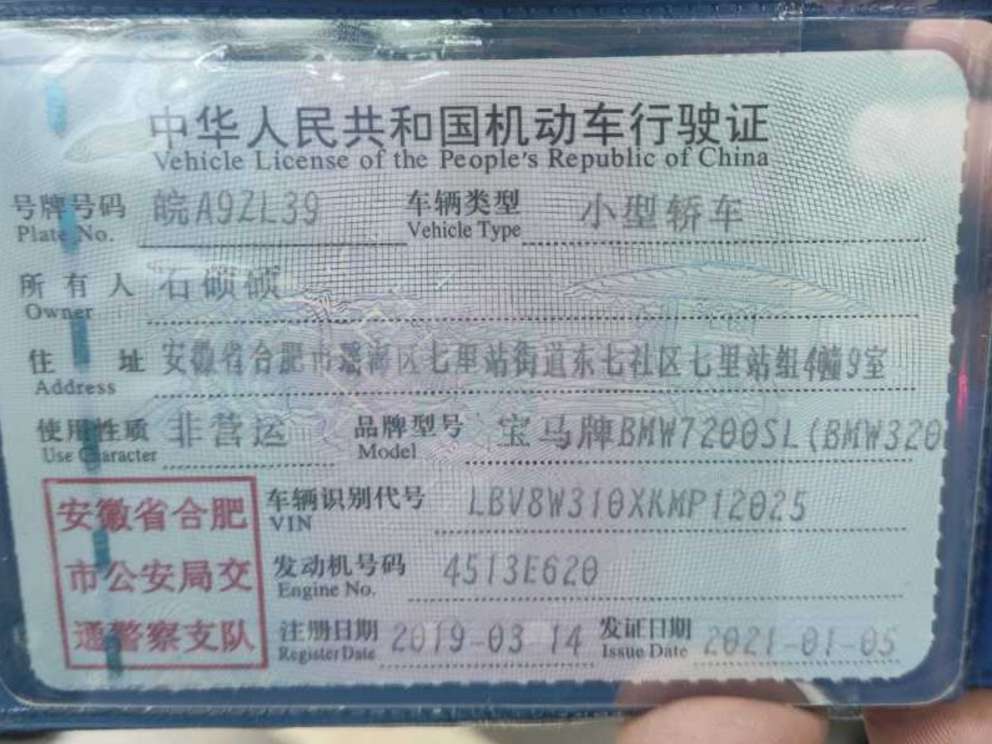 中华人民共和国机动车行驶证
Vehicle License of the People's Republic of China
号牌号码 皖A9ZL39 车辆类型 小型轿车
Plate No. Vehicle Type
所有人 石硕硕
Owner
住址 安徽省合肥市瑶海区七里站街道东七社区七里站组4幢9室
Address
使用性质 非营运 品牌型号 宝马牌BMW7200SL(BMW320
Use Character Model
安徽省合肥 车辆识别代号 LBV8W310XKMP12025
VIN
市公安局交 发动机号码 4513E620
Engine No.
通警察支队 注册日期 2019-03 14 发证日期 2021-01-05
Register Date Issue Date